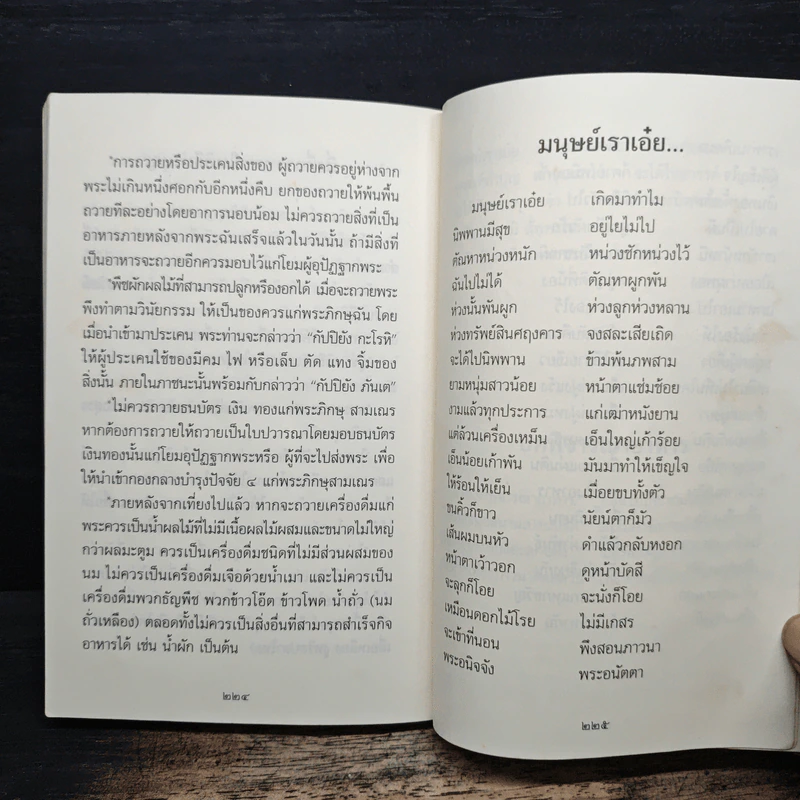 "การถวายหรือประเคนสิ่งของ ผู้ถวายควรอยู่ห่างจาก
พระไม่เกินหนึ่งศอกกับอีกหนึ่งคืบ ยกของถวายให้พ้นพื้น
ถวายทีละอย่างโดยอาการนอบน้อม ไม่ควรถวายสิ่งที่เป็น
อาหารภายหลังจากพระฉันเสร็จแล้วในวันนั้น ถ้ามีสิ่งที่
เป็นอาหารจะถวายอีกควรมอบไว้แก่โยมผู้อุปัฏฐากพระ
"พืชผักผลไม้ที่สามารถปลูกหรืองอกได้ เมื่อจะถวายพระ
พึงทำตามวินัยกรรม ให้เป็นของควรแก่พระภิกษุฉัน โดย
เมื่อนำเข้ามาประเคน พระท่านจะกล่าวว่า "กัปปิยัง กะโรหิ"
ให้ผู้ประเคนใช้ของมีคม ไฟ หรือเล็บ ตัด แทง จิ้มของ
สิ่งนั้น ภายในภาชนะนั้นพร้อมกับกล่าวว่า "กัปปิยัง ภันเต"
"ไม่ควรถวายธนบัตร เงิน ทองแก่พระภิกษุ สามเณร
หากต้องการถวายให้ถวายเป็นใบปวารณาโดยมอบธนบัตร
เงินทองนั้นแก่โยมอุปัฏฐากพระหรือ ผู้ที่จะไปส่งพระ เพื่อ
ให้นำเข้ากองกลางบำรุงปัจจัย ๔ แก่พระภิกษุสามเณร
"ภายหลังจากเที่ยงไปแล้ว หากจะถวายเครื่องดื่มแก่
พระควรเป็นน้ำผลไม้ที่ไม่มีเนื้อผลไม้ผสมและขนาดไม่ใหญ่
กว่าผลมะตูม ควรเป็นเครื่องดื่มชนิดที่ไม่มีส่วนผสมของ
นม ไม่ควรเป็นเครื่องดื่มเจือด้วยน้ำเมา และไม่ควรเป็น
เครื่องดื่มพวกธัญพืช พวกข้าวโอ๊ต ข้าวโพด น้ำถั่ว (นม
ถั่วเหลือง) ตลอดทั้งไม่ควรเป็นสิ่งอื่นที่สามารถสำเร็จกิจ
อาหารได้ เช่น น้ำผัก เป็นต้น
๒๒๔
มนุษย์เราเอ๋ย...
มนุษย์เราเอ๋ย เกิดมาทำไม
นิพพานมีสุข อยู่ไยไม่ไป
ตัณหาหน่วงหนัก หน่วงชักหน่วงไว้
ฉันไปไม่ได้ ตัณหาผูกพัน
ห่วงนั้นพันผูก ห่วงลูกห่วงหลาน
ห่วงทรัพย์สินศฤงคาร จงสละเสียเถิด
จะได้ไปนิพพาน ข้ามพ้นภพสาม
ยามหนุ่มสาวน้อย หน้าตาแช่มช้อย
งามแล้วทุกประการ แก่เฒ่าหนังยาน
แต่ล้วนเครื่องเหม็น เอ็นใหญ่เก้าร้อย
เอ็นน้อยเก้าพัน มันมาทำให้เข็ญใจ
ให้ร้อนให้เย็น เมื่อยขบทั้งตัว
ขนคิ้วก็ขาว นัยน์ตาก็มัว
เส้นผมบนหัว ดำแล้วกลับหงอก
หน้าตาเว้าวอก ดูหน้าบัดสี
จะลุกก็โอย จะนั่งก็โอย
เหมือนดอกไม้โรย ไม่มีเกสร
จะเข้าที่นอน พึงสอนภาวนา
พระอนิจจัง พระอนัตตา
๒๒๕